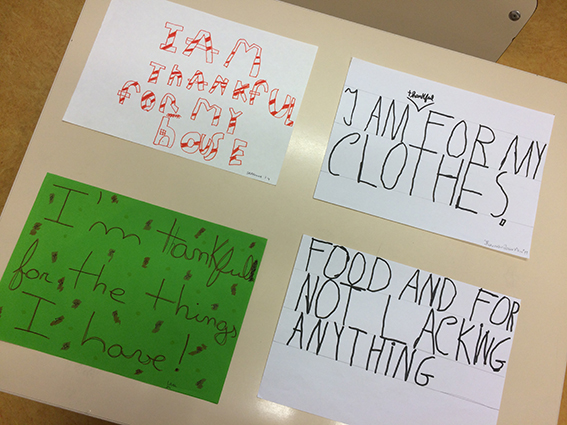 I AM
THANKFUL
FOR MY
HOUSE
thankful
I AM FOR MY
CLOTHES,
I'm tankful
for the things
I have!
FOOD AND FOR
NOT LACKING
ANYTHING